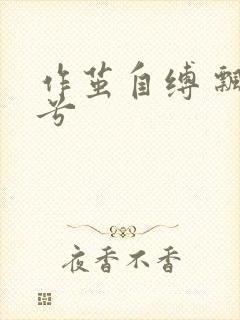 作茧自缚飘
兮
夜香不香